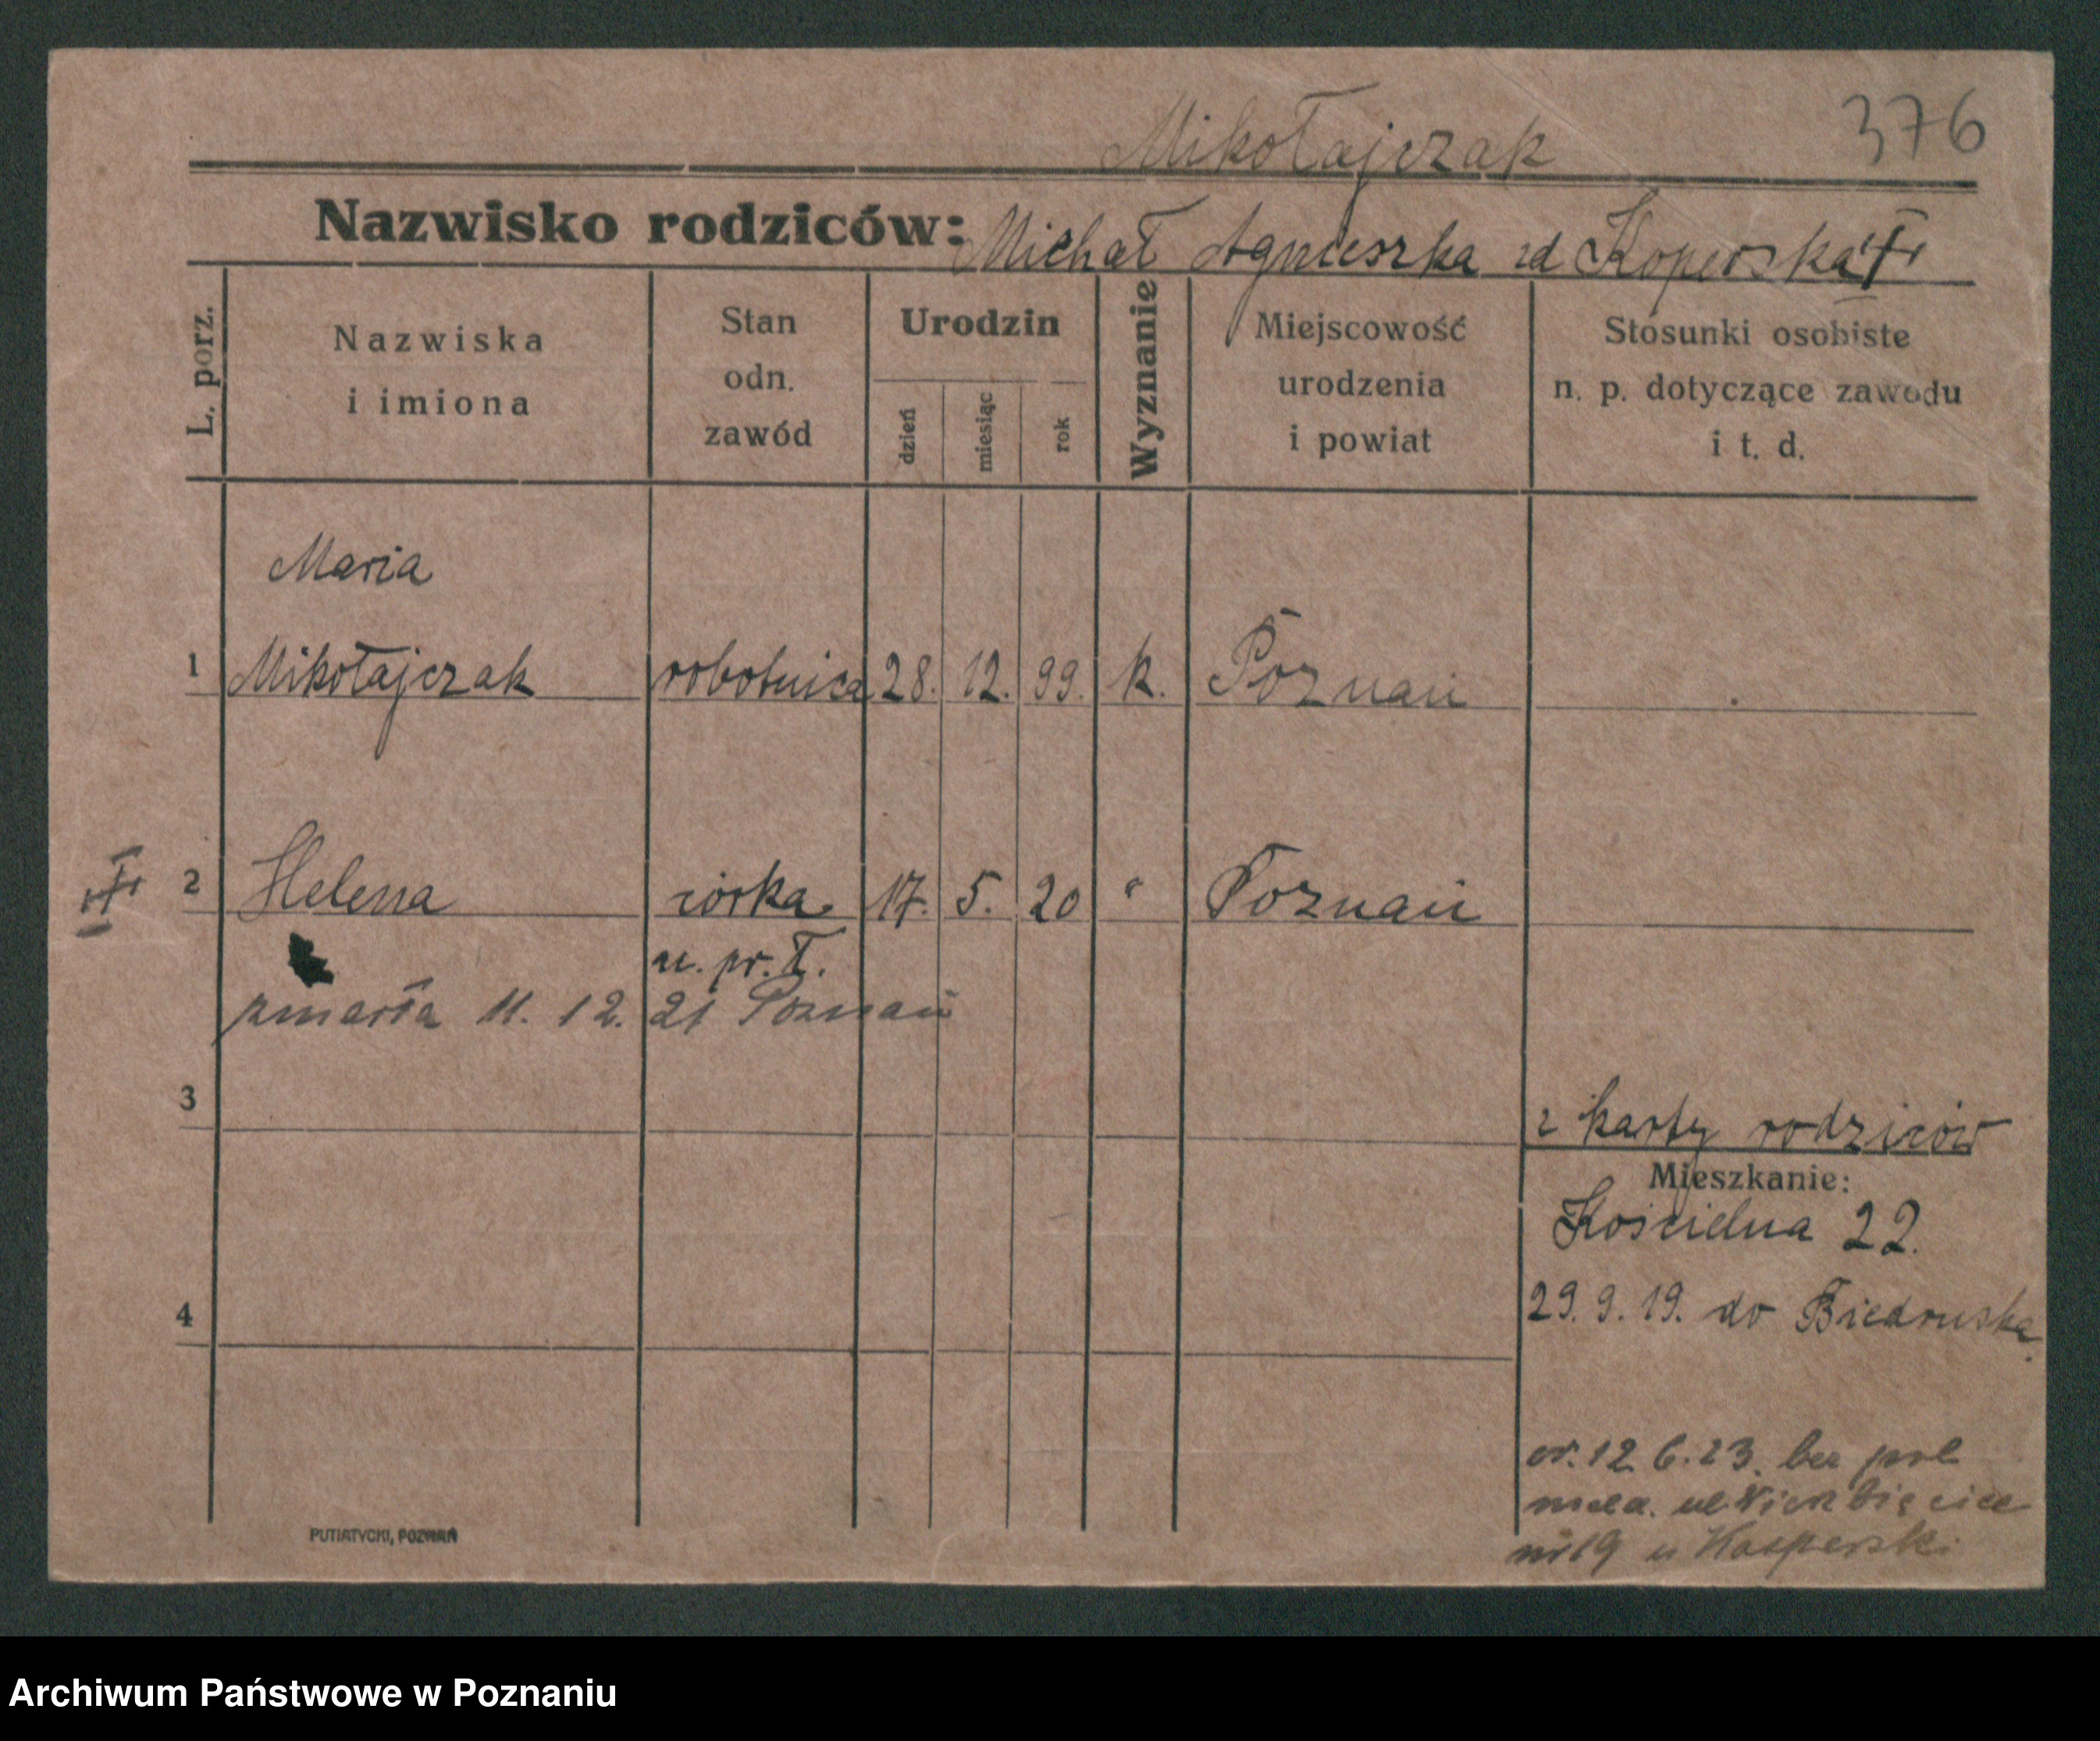 Mikołajczak 376
Nazwisko rodziców: Michał Agnieszka zd Koperska
L. porz.
Nazwiska
i imiona
Stan
odn.
zawód
Urodzin
dzień
miesiąc
rok
Wyznanie
Miejscowość
urodzenia
i powiat
Stosunki osobiste
n. p. dotyczące zawodu
i t. d.
Maria
1 Mikołajczak robotnica 28. 12. 99. k. Poznań
2 Helena córka 17. 5. 20 " Poznań
n. pr. Ł.
zmarła 11. 12. 21 Poznań
3
z karty rodziców
Mieszkanie:
Kościelna 22.
4
29. 9. 19. do Biedruska.
12 6. 23. bez
ul Wierzbięcice
nr 19 u Kasperski
PUTIATYCKI, POZNAŃ
Archiwum Państwowe w Poznaniu